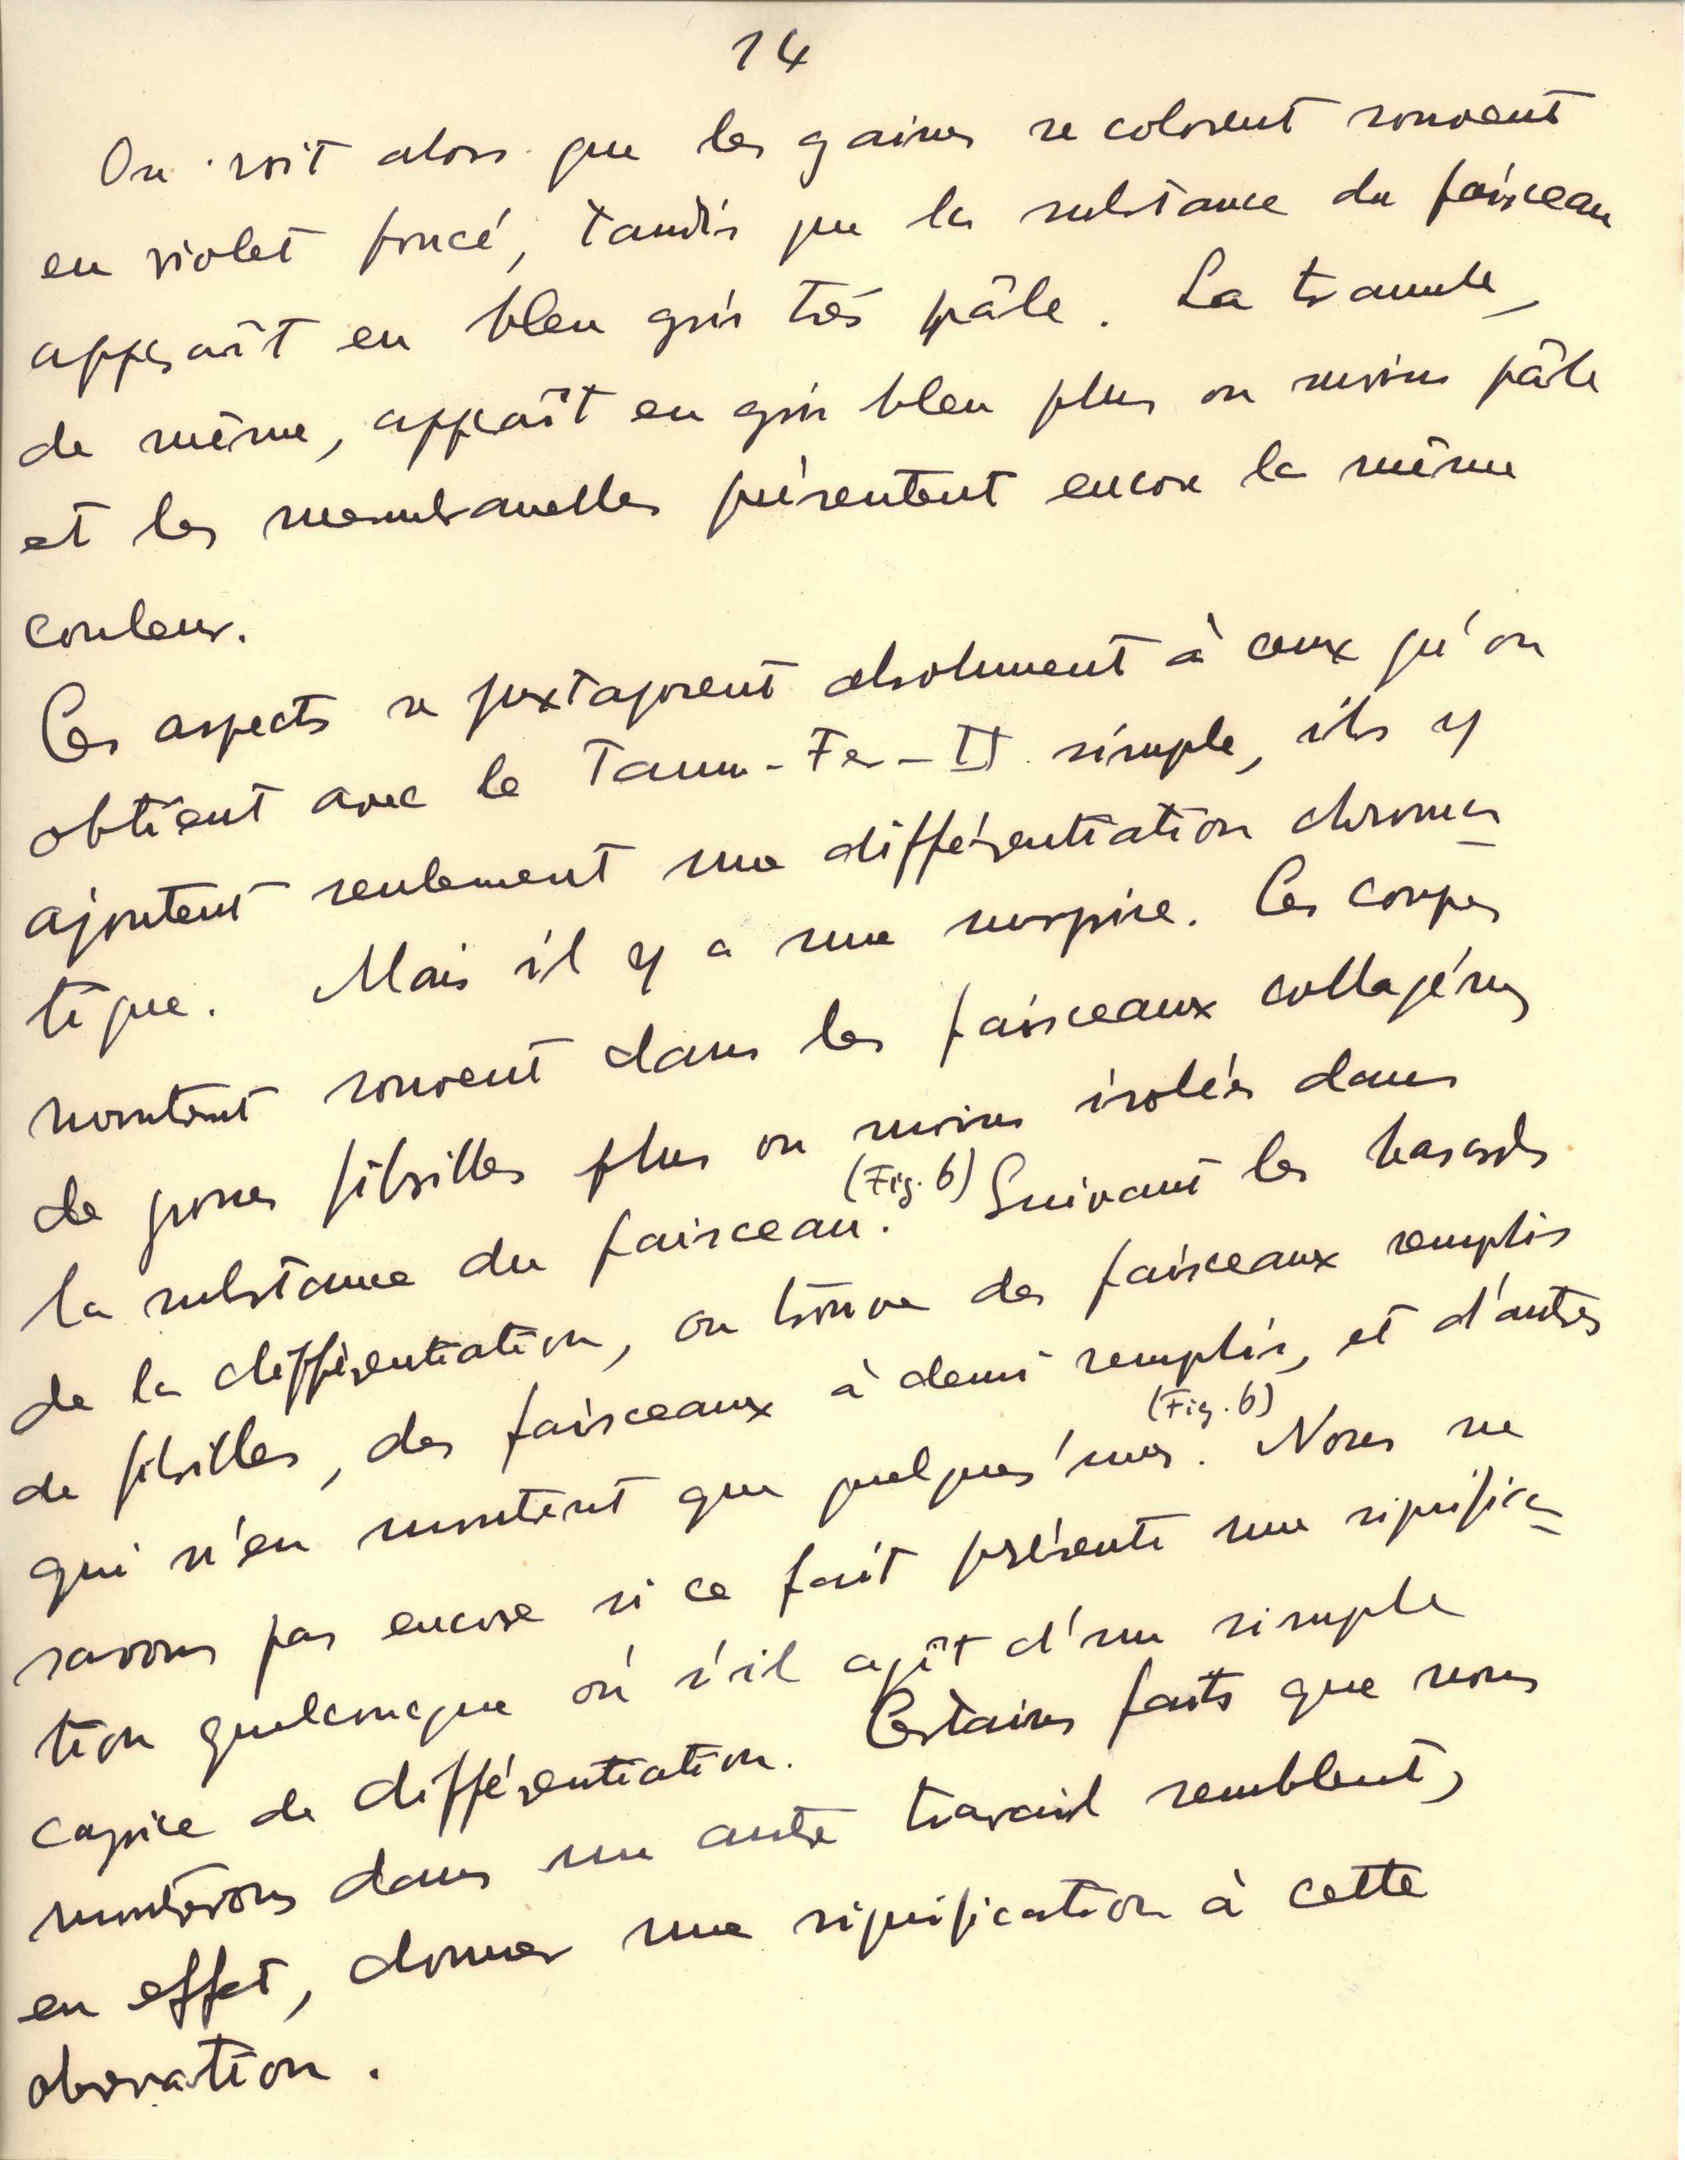 14
On voit alors que les gaines se colorent souvent
en violet foncé, tandis que la substance du faisceau
apparaît en bleu gris très pâle. La tramule,
de même, appraît en gris bleu plus ou moins pâle
et les membranelles présentent encore la même
couleur.
Ces aspects se juxtaposent absolument à ceux qu'on
obtient avec le Tann-Fer-II simple, ils y
ajoutent seulement une différentiation chroma-
tique. Mais il y a une surprise. Les coupes
montrent souvent dans les faisceaux collagénes
de grosses fibrilles plus ou moins isolées dans
la substance du faisceau. (Fig. 6) Suivant les hasards
de la différentiation, on trouve des faisceaux remplis
de fibrilles, des faisceaux à demi remplis, et d'autres
qui n'en montrent que quelques'unes. (Fig. 6) Nous ne
savons pas encore si ce fait présente une significa=
tion quelconque où s'il agît d'un simple
caprice de différentiation. Certains faits que nous
montrerons dans un autre travail semblent,
en effet, donner une signification à cette
observation.